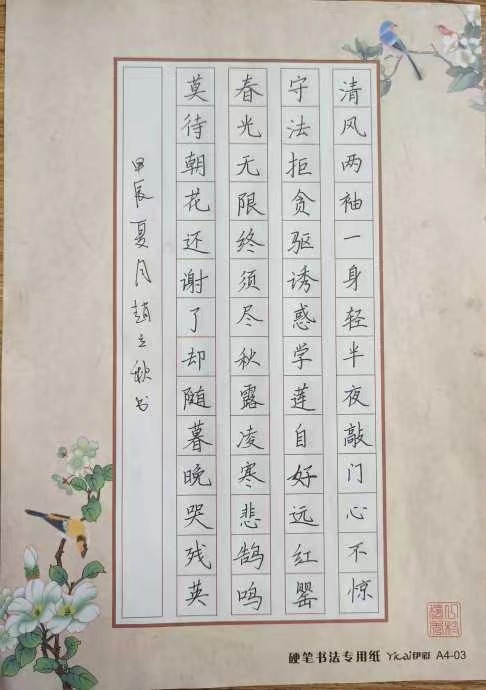 清风两袖一身轻半夜敲门心不惊
守法拒贪驱诱惑学莲自好远红罂
春光无限终须尽秋露凌寒悲鹄鸣
莫待朝花还谢了却随暮晚哭残英
甲辰夏月赵立秋书
硬笔书法专用纸 Yicai伊彩 A4-03